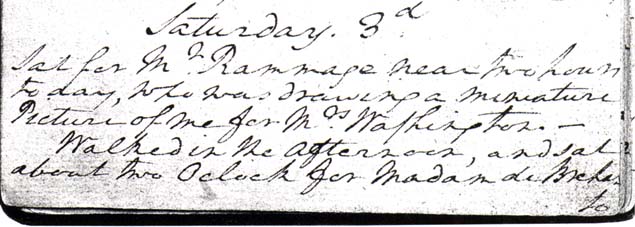 Saturday. 3d
Sat for Mr. Rammage near two hours
to day, who was drawing a miniature
Picture of me for Mrs Washington. —
Walked in the afternoon, and sat
about two Oclock for Madam de Breha
to